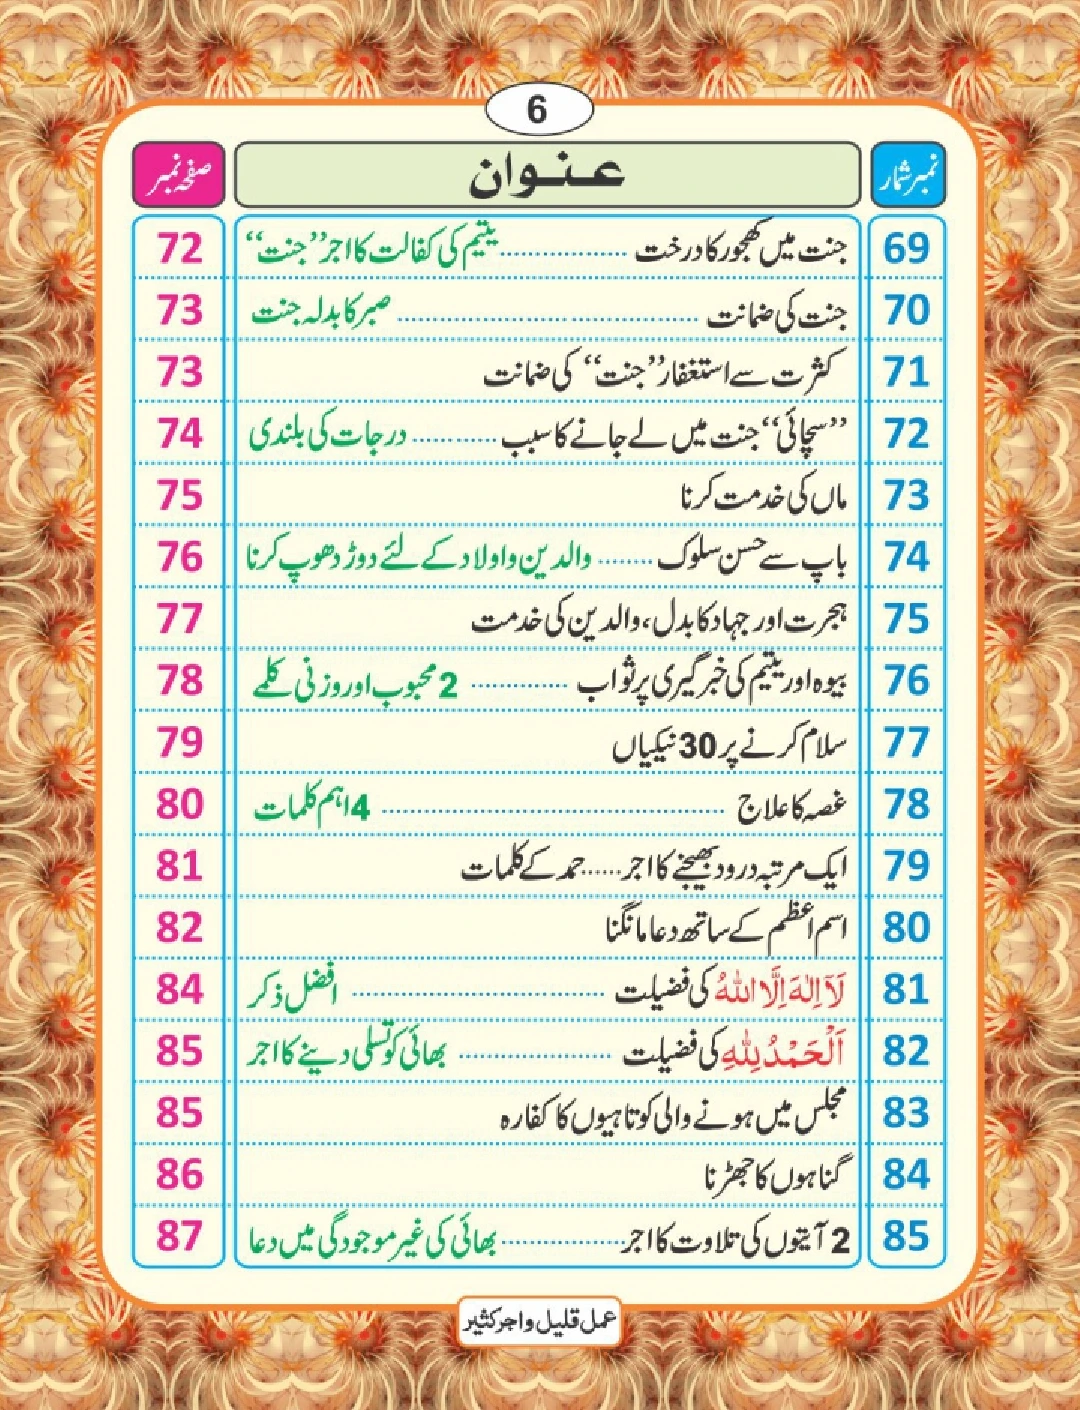 6
نمبر شمار عنوان صفحہ نمبر
69 جنت میں کھجور کا درخت .................. یتیم کی کفالت کا اجر ’’جنت‘‘ 72
70 جنت کی ضمانت .......................................... صبر کا بدلہ جنت 73
71 کثرت سے استغفار ’’جنت‘‘ کی ضمانت 73
72 ’’سچائی‘‘ جنت میں لے جانے کا سبب ............ درجات کی بلندی 74
73 ماں کی خدمت کرنا 75
74 باپ سے حسن سلوک ........ والدین و اولاد کے لئے دوڑ دھوپ کرنا 76
75 ہجرت اور جہاد کا بدل، والدین کی خدمت 77
76 بیوہ اور یتیم کی خبر گیری پر ثواب .............. 2 محبوب اور وزنی کلمے 78
77 سلام کرنے پر 30 نیکیاں 79
78 غصہ کا علاج ................................................ 4 اہم کلمات 80
79 ایک مرتبہ درود بھیجنے کا اجر ...... حمد کے کلمات 81
80 اسم اعظم کے ساتھ دعا مانگنا 82
81 لَآ اِلٰهَ اِلَّا اللّٰهُ کی فضیلت .................................... افضل ذکر 84
82 اَلْحَمْدُ لِلّٰهِ کی فضیلت ...................... بھائی کو تسلی دینے کا اجر 85
83 مجلس میں ہونے والی کوتاہیوں کا کفارہ 85
84 گناہوں کا جھڑنا 86
85 2 آیتوں کی تلاوت کا اجر .................. بھائی کی غیر موجودگی میں دعا 87
عمل قلیل و اجر کثیر